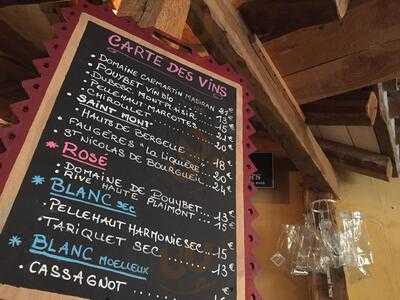 CARTE DES VINS
DOMAINE CAPMARTIN MADIRAN
POUYBET VIN BIO
DUBESC MONTPLAISIR
PELLEHAUT HARMONIE
CHIROULET
SAINT MONT
HAUTS DE BERGELLE
FAUGÈRES "LA LIQUIÈRE"
ST NICOLAS DE BOURGUEIL 24€
* ROSÉ
DOMAINE DE POUYBET 13€
RIVE HAUTE PLAIMONT 15€
* BLANC SEC
PELLEHAUT HARMONIE SEC 15€
TARIQUET SEC 13€
* BLANC MOELLEUX
CASSAGNOT